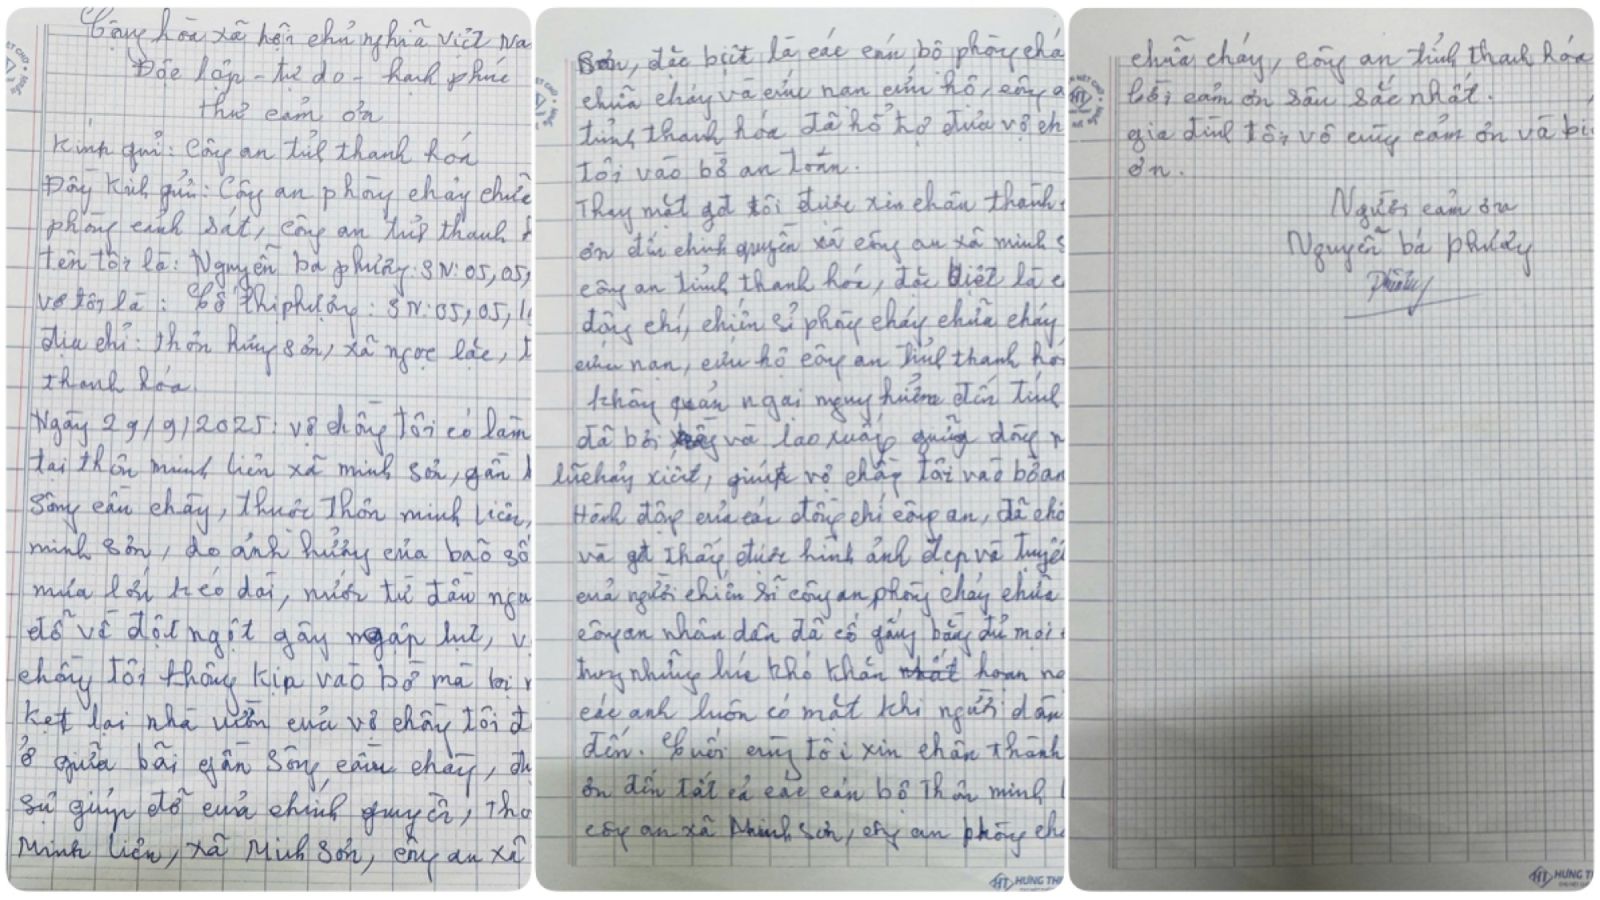 Cộng hòa xã hội chủ nghĩa việt na
Độc lập - tự do - hạnh phúc
thư cảm ơn
Kính gửi: Công an tỉnh thanh hóa
Đồng Kính gửi: Công an phòng cháy chữa
phòng cảnh sát, công an tỉnh thanh
tên tôi là: Nguyễn bá phượng: SN: 05, 05,
vợ tôi là: thị phượng: SN: 05, 05, 1
địa chỉ: thôn hưng sơn, xã ngọc lặc,
thanh hóa.
Ngày 29/9/2025: vợ chồng tôi có làm
tại thôn minh liên xã minh sơn, gần
Sông cầu chày, thuộc thôn minh liên,
minh sơn, do ảnh hưởng của baõ số
mưa lớn kéo dài, nước từ đầu ngu
đỗ về đột ngột gây ngập lụt, v
chồng tôi không kịp vào bờ mà bị
kẹt lại nhà vườn của vợ chồng tôi
ở giữa bãi gần sông cầu chày,
sự giúp đỡ của chính quyền, thô
Minh liên, xã Minh Sơn, công an xã
Sơn, đặc biệt là các cán bộ phòng chá
chữa cháy và cứu nạn cứu hộ, công a
tỉnh thanh hóa đã hổ trợ đưa vợ ch
tôi vào bờ an toàn.
Thay mặt gđ tôi được xin chân thành
ơn đến chính quyền xã công an xã minh s
công an tỉnh thanh hóa, đặc biệt là c
đồng chí, chiến sĩ phòng cháy chữa cháy
cứu nạn, cứu hộ công an tỉnh thanh hóa
không quản ngại nguy hiểm đến tính
đã bơi và lao xuống giữa dòng n
lũ chảy xiết, giúp vợ chồng tôi vào bờ an
Hành động của các đồng chí công an, đã cho
và gđ thấy được hình ảnh đẹp và tuyệ
của người chiến sĩ công an phòng cháy chữa
công an nhân dân đã cố gắng bằng đủ mọi
trong những lúc khó khăn hoạn nạ
các anh luôn có mặt khi người dân
đến. Cuối cùng tôi xin chân thành
ơn đến tất cả các cán bộ thôn minh l
công an xã Minh Sơn, công an phòng ch
chữa cháy, công an tỉnh thanh hóa
lời cảm ơn sâu sắc nhất.
gia đình tôi vô cùng cảm ơn và bi
ơn.
Người cảm ơn
Nguyễn bá phượng
HƯNG TH
HƯNG T